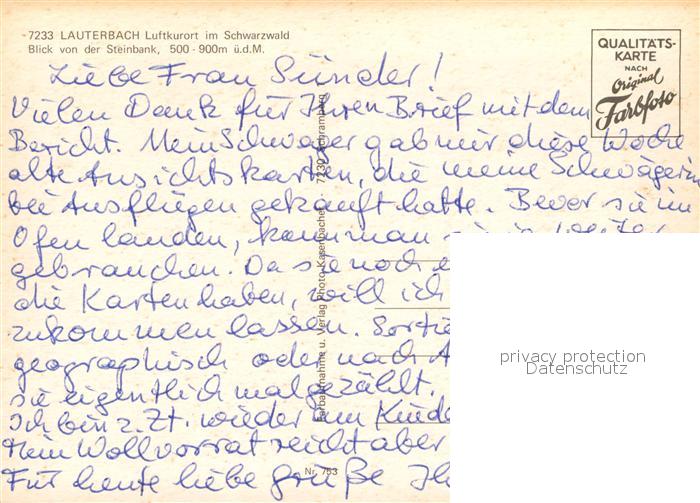 7233 LAUTERBACH Luftkurort im Schwarzwald
Blick von der Steinbank, 500 - 900m ü.d.M.
QUALITÄTS-
KARTE
NACH
Original
Farbfoto
Liebe Frau Sünder!
Vielen Dank für Ihren Brief mit dem
Bericht. Mein Schwager gab mir diese Woche
alte Ansichtskarten, die meine Schwägerin
bei Ausflügen gekauft hatte. Bevor sie im
Ofen landen, kann man sie ja weiter
gebrauchen. Da sie noch
die Karten haben, will ich
zukommen lassen. Sortie
geographisch oder nach A
sie eigentlich mal gezählt.
Ich bin z. Zt. wieder am Kinde
Mein Wollvorrat reicht aber
Für heute liebe Grüße Ih
Farbaufnahme u. Verlag Photo-Kasenbacher, 7230 Schramberg 1
Nr. 753
privacy protection
Datenschutz